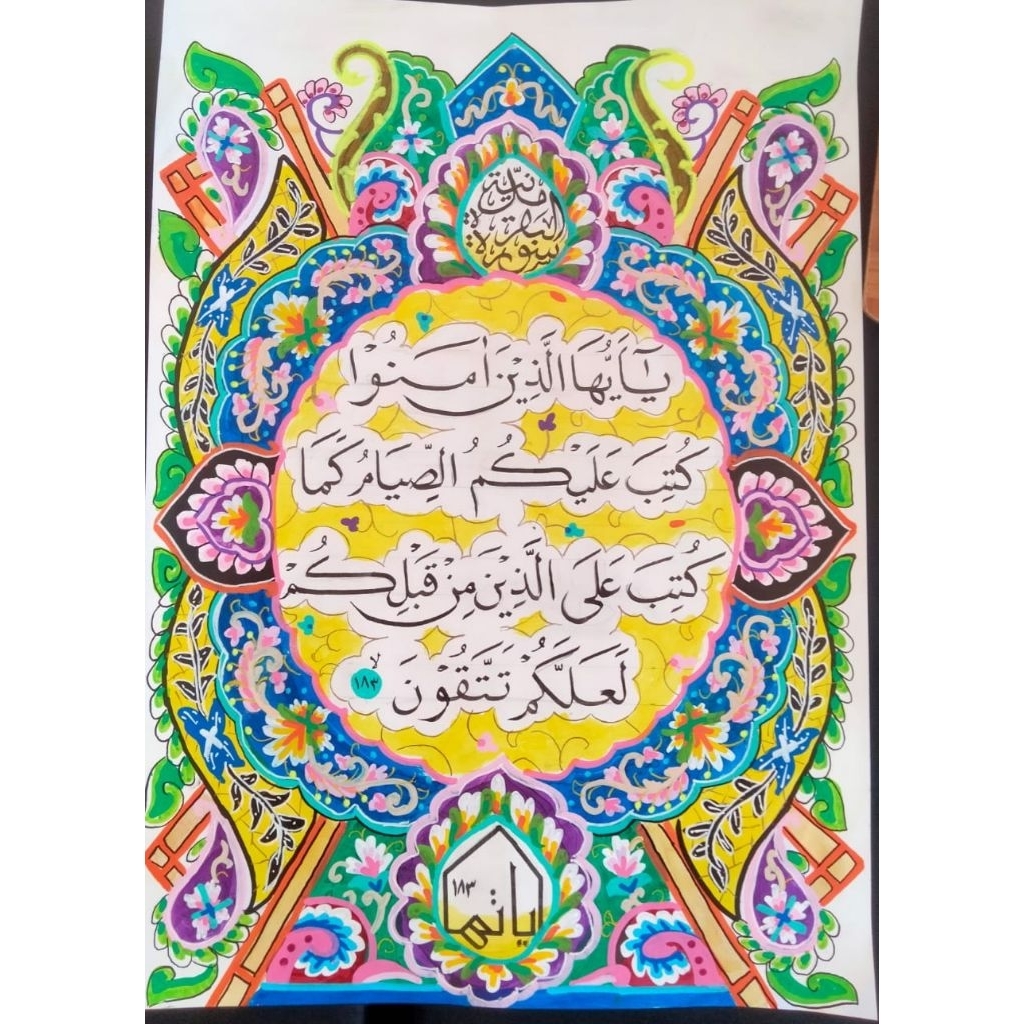 سورة البقرة مدنية
يٰٓاَيُّهَا الَّذِيْنَ اٰمَنُوْا
كُتِبَ عَلَيْكُمُ الصِّيَامُ كَمَا
كُتِبَ عَلَى الَّذِيْنَ مِنْ قَبْلِكُمْ
لَعَلَّكُمْ تَتَّقُوْنَ ۙ ١٨٣
اياتها ١٨٣